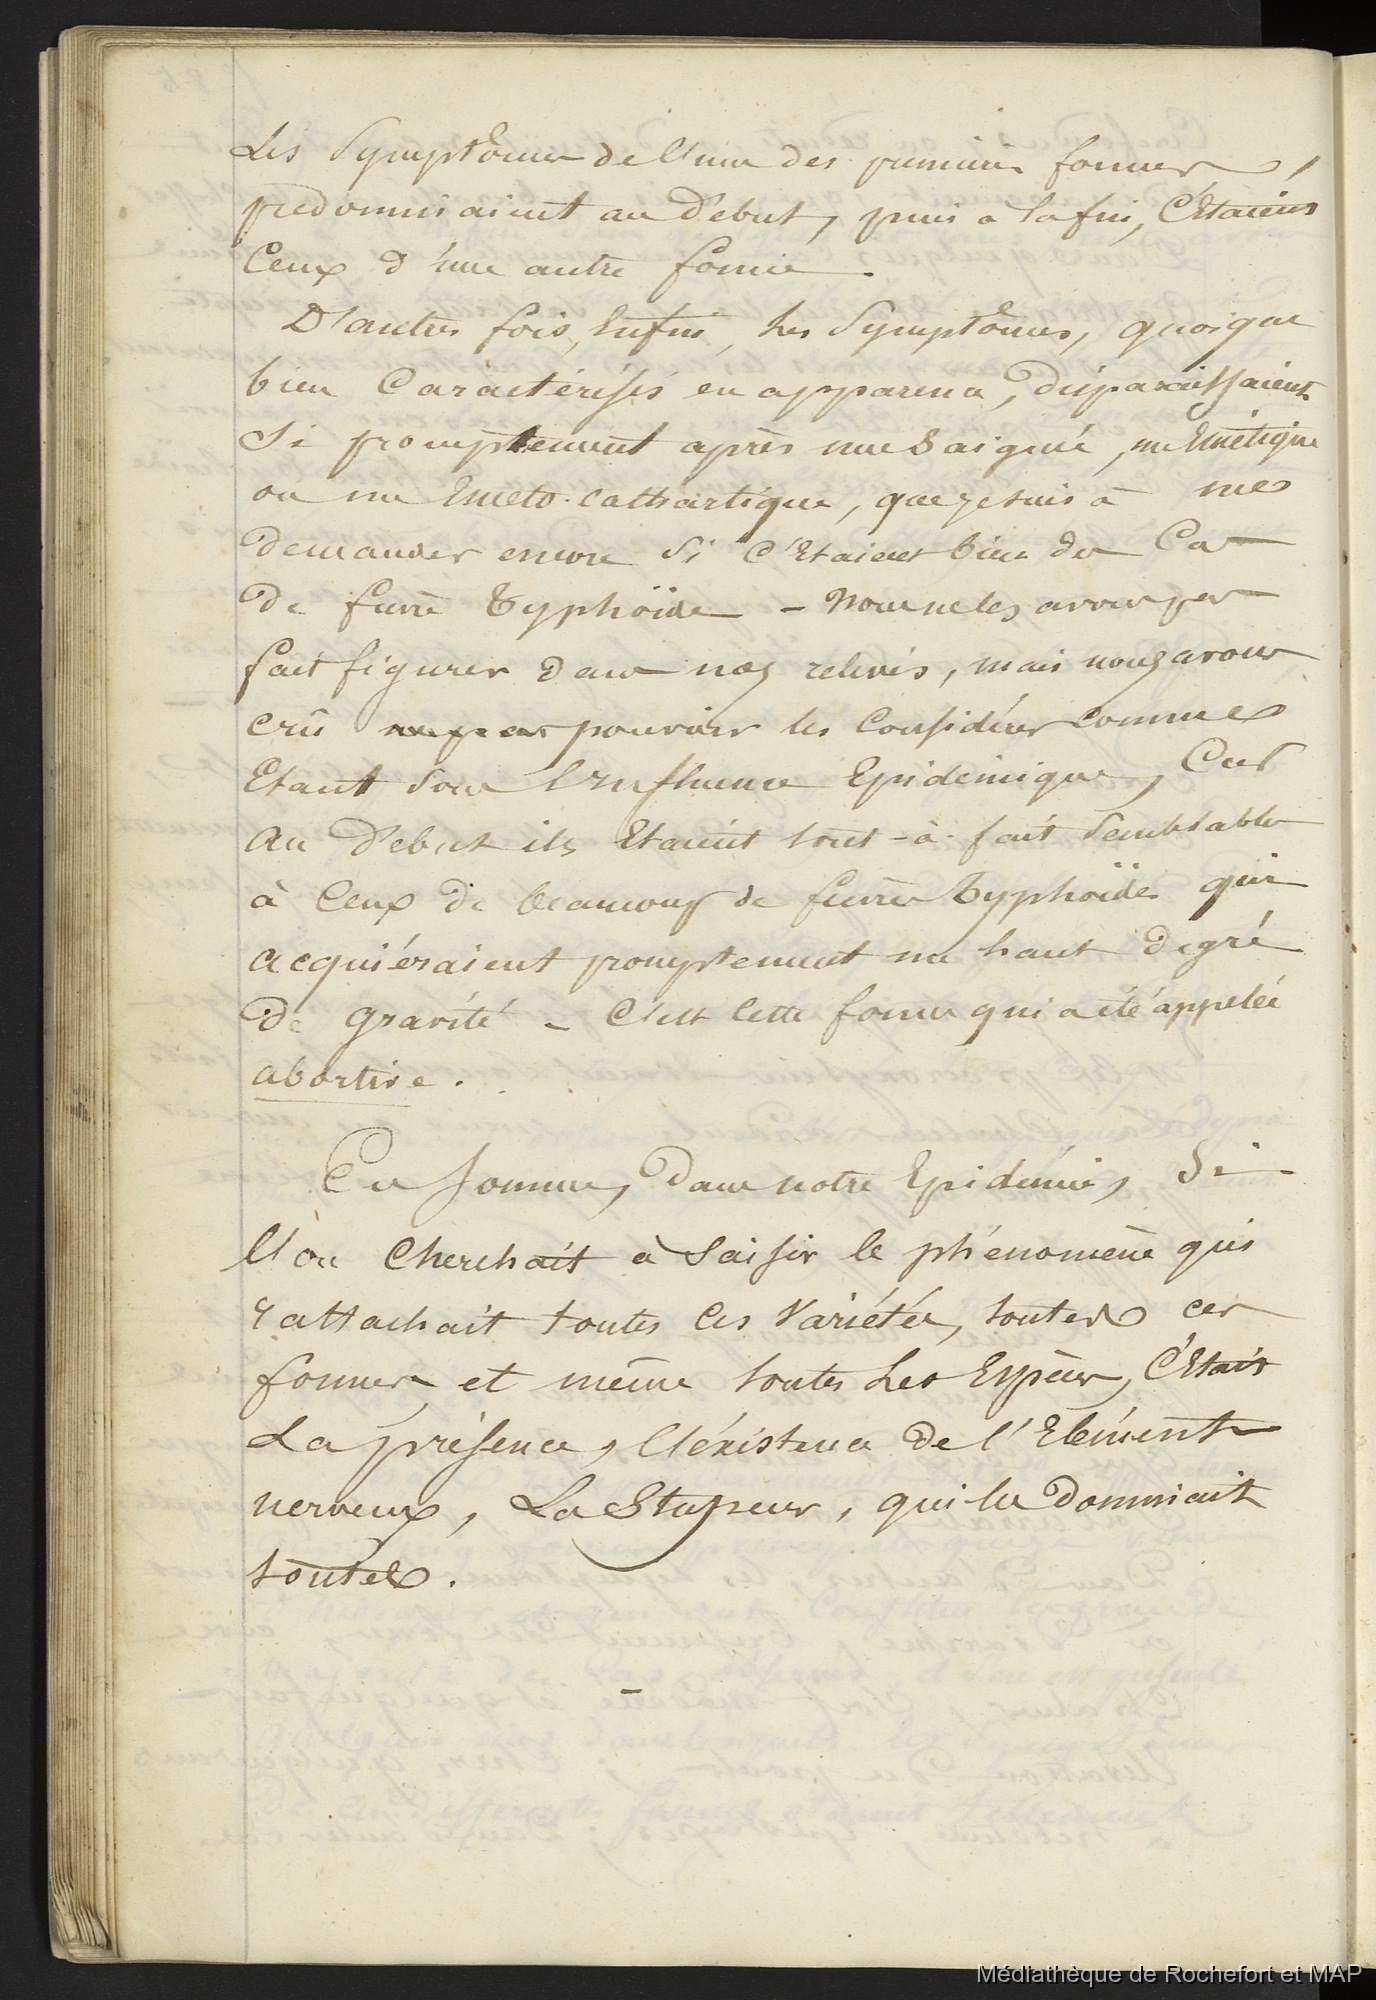 Les Symptômes de l'une des premières formes,
prédominaient au début, puis à la fin, C'étaient
Ceux d'une autre forme.
D'autres fois, Enfin, Les Symptômes, quoique
bien Caractérisés en apparence, disparaissaient
Si promptement après une Saignée, un Emétique
ou un Emeto-cathartique, que je suis à me
demander encore Si C'Etaient bien des Cas
de fièvre Typhoïde - nous ne les avons pas
fait figurer dans nos relevés, mais nous avons
crû pouvoir les Considérer comme
Etant sous L'Influence Epidémique, Car
au Début ils Etaient tout-à-fait Semblables
à Ceux de beaucoup de fièvres Typhoïdes qui
acquiéraient promptement un haut degré
de gravité - C'est Cette forme qui a été appelée
abortive.
En Somme, Dans notre Epidémie, Si
l'on Cherchait à Saisir le phénomène qui
rattachait toutes Ces Variétés, toutes ces
formes et même toutes Les Espèces, C'Etait
La présence, l'éxistence de l'Elément
nerveux, La Stupeur, qui les Dominait
toutes.
Médiathèque de Rochefort et MAP